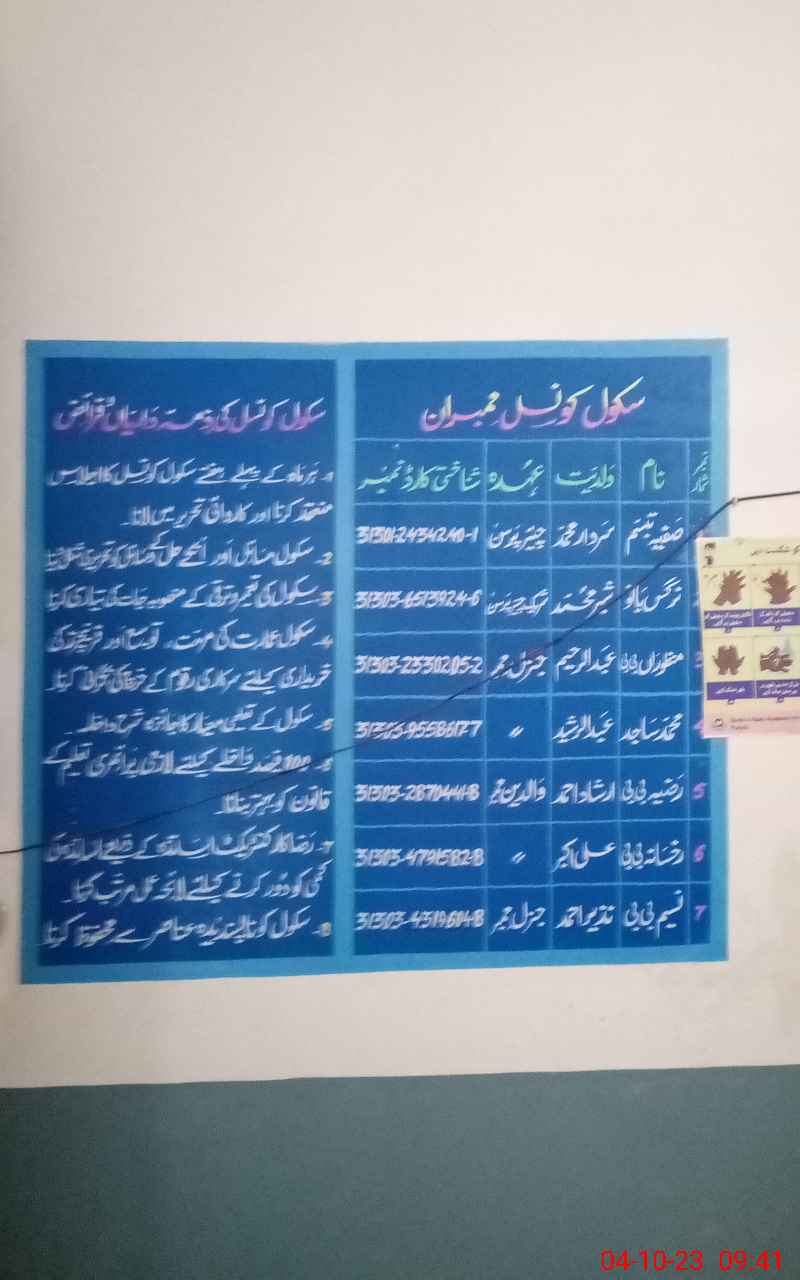 سکول کونسل ممبران
نمبر شمار نام ولدیت عہدہ شناختی کارڈ نمبر
صفیہ تبسم سردار محمد چیئر پرسن 31301-2434240-1
نرگس بانو شیر محمد شریک چیئر پرسن 31303-6573924-6
منظوراں بی بی عبدالرحیم جنرل ممبر 31303-2330205-2
محمد ساجد عبدالرشید 〃
5 رضیہ بی بی ارشاد احمد والدین ممبر 31303-2870441-8
6 رخسانہ بی بی علی اکبر 〃 31303-4791582-8
7 نسیم بی بی نذیر احمد جنرل ممبر 31303-4319604-8
سکول کونسل کی ذمہ داریاں و فرائض
1- ہر ماہ کے پہلے ہفتے سکول کونسل کا اجلاس
منعقد کرنا اور کاروائی تحریر میں لانا۔
2- سکول مسائل اور انکے حل کے وسائل کو تحریری شکل دینا
3- سکول کی تعمیر و ترقی کے منصوبہ جات کی تیاری کرنا
4- سکول عمارت کی مرمت، توسیع اور فرنیچر کی
خریداری کیلئے سرکاری رقوم کے خرچ کی نگرانی کرنا۔
5- سکول کے تعلیمی معیار کا جائزہ شرح داخلہ
6- 100 فیصد داخلے کیلئے لازمی پرائمری تعلیم کے
قانون کو بہتر بنانا۔
7- رضاکار کنٹریکٹ اساتذہ کے ذریعے اساتذہ کی
کمی کو دور کرنے کیلئے لائحہ عمل مرتب کرنا۔
8- سکول کو ناپسندیدہ عناصر سے محفوظ کرنا
04-10-23 09:41